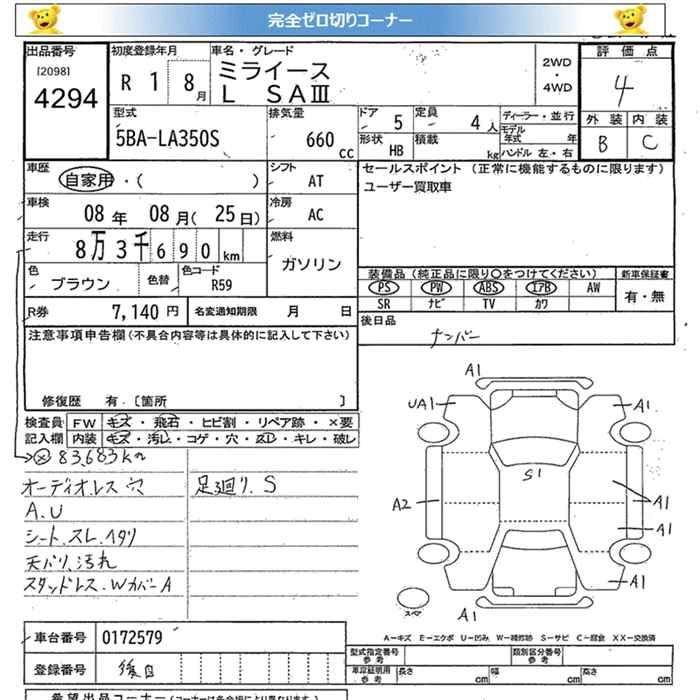 完全ゼロ切りコーナー
出品番号
[2098]
4294
初度登録年月
R 1 8月
車名・グレード
ミライース
L SAⅢ
2WD
・
4WD
評価点
4
外装 内装
B C
型式
5BA-LA350S
排気量
660 cc
ドア 5
定員 4人
形状 HB
積載 kg
ディーラー・並行
モデル年式 年
ハンドル 左・右
車歴
自家用・( )
シフト
AT
セールスポイント (正常に機能するものに限ります)
ユーザー買取車
車検
08年 08月(25日)
冷房
AC
走行
8万3千690km
燃料
ガソリン
色
ブラウン
色替
色コード
R59
装備品(純正品に限り○をつけてください)
PS PW ABS エアB AW
SR ナビ TV カワ
新車保証書
有・無
R券 7,140円
名変通知期限 月 日
後日品
ナンバー
注意事項申告欄(不具合内容等は具体的に記入して下さい)
修復歴 有.〔箇所 〕
検査員
記入欄
FW キズ・飛石・ヒビ割・リペア跡・×要
内装 キズ・汚し・コゲ・穴・スレ・キレ・破レ
83,683km
オーディオレス穴
足廻り.S
A.U
シート.スレ.イタリ
天バリ.汚れ
スタッドレス.WカバーA
A1
UA1
A1
S1
A2
A1
A1
A1
スペア
A1
A－キズ E－エクボ U－凹み W－補修跡 S－サビ C－腐食 XX－交換済
車台番号 0172579
登録番号 後日
型式指定番号
参考
類別区分番号
参考
車庫証明用
参考
長さ cm
幅 cm
高さ cm
希望出品コーナー